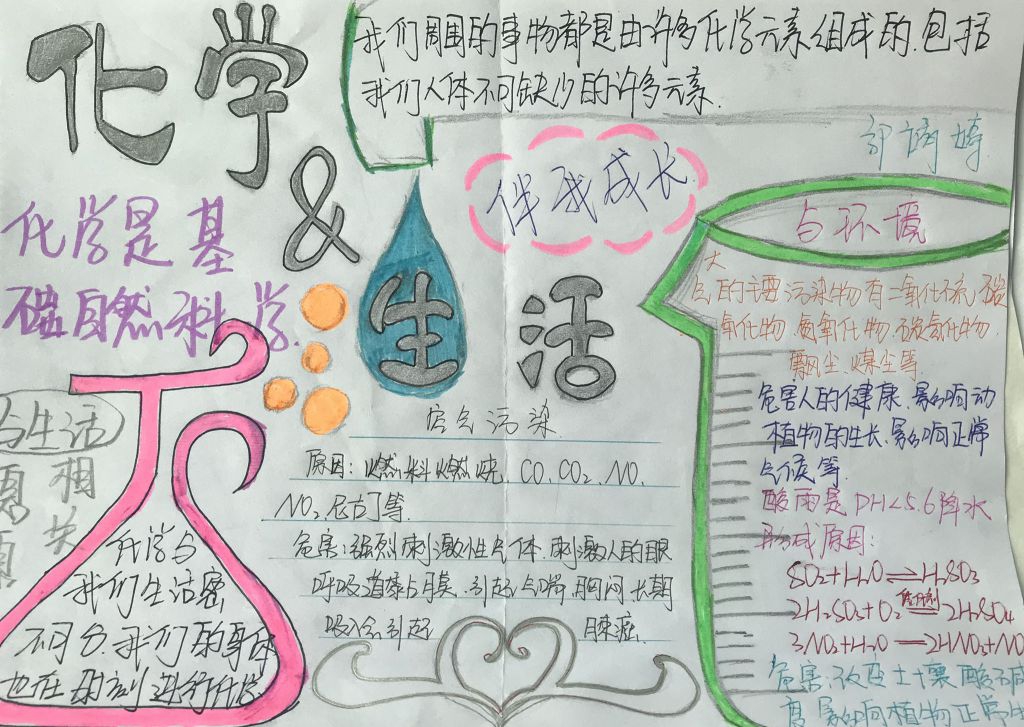 化学
&
生活
我们周围的事物都是由许多化学元素组成的.包括
我们人体不可缺少的许多元素.
伴我成长
化学是基
础自然科学.
与生活
相
关
化学与
我们生活密
不可分.我们的身体
也在时刻进行化学
空气污染
原因:燃料燃烧.CO.CO₂.NO.
NO₂.尼古丁等.
危害:强烈刺激性气体.刺激人的眼
呼吸道黏膜.引起气喘.胸闷.长期
吸入会引起 癌.
与环境
大
气的主要污染物有二氧化硫.碳
氧化物.氮氧化物.碳氢化物.
飘尘.煤尘等.
危害人的健康.影响动
植物的生长.影响正常
气候等.
酸雨是PH<5.6降水
形成原因:
SO₂+H₂O⇌H₂SO₃
2H₂SO₃+O₂ 催化剂 2H₂SO₄
3NO₂+H₂O—2HNO₃+NO
危害:改变土壤酸碱
影响植物正常生